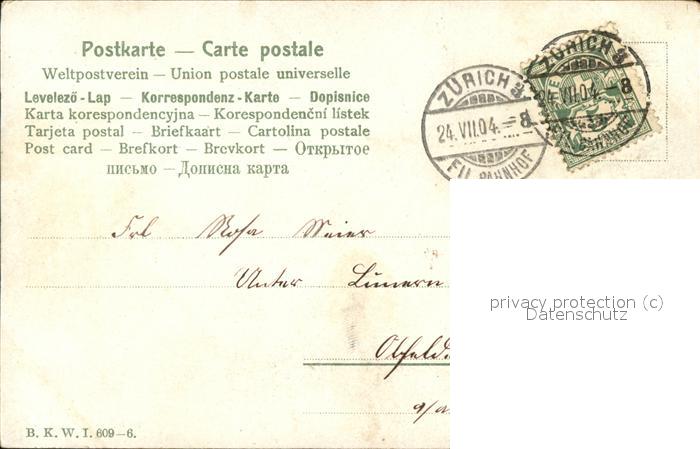 Postkarte — Carte postale
Weltpostverein — Union postale universelle
Levelező-Lap — Korrespondenz-Karte — Dopisnice
Karta korespondencyjna — Korespondenční lístek
Tarjeta postal — Briefkaart — Cartolina postale
Post card — Brefkort — Brevkort — Открытое
письмо — Дописна карта
ZÜRICH
24.VII.04. — 8
FIL. BAHNHOF
ZÜRICH
24.VII.04. — 8
FIL. BAHNHOF
Frl Rosa Meier
Unter Lunnern
Obfeld
a/a.
privacy protection (c)
Datenschutz
B. K. W. I. 609–6.